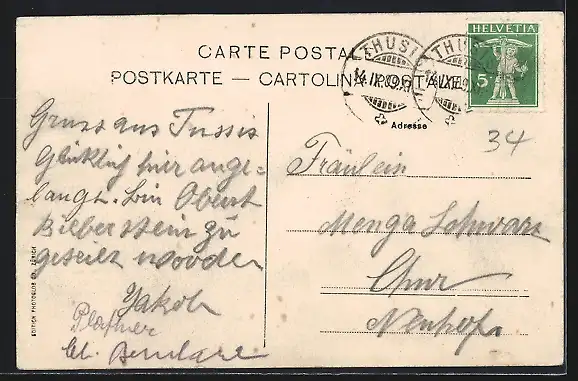 CARTE POSTALE
POSTKARTE — CARTOLINA POSTALE
THUSIS
THUSIS
HELVETIA
5
Adresse
34
Gruss aus Tussis
Glüklich hier ange=
langt. bin Oberst
Bieberstein zu
geteilt worden
Jakob
Plattner
Fräulein
Menga Schwarz
Chur
Neuhof
EDITION PHOTOGLOB CO. ZÜRICH